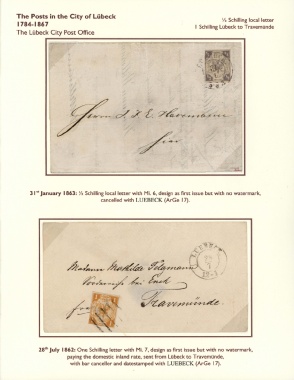 The Posts in the City of Lübeck
1784-1867
The Lübeck City Post Office
½ Schilling local letter
1 Schilling Lübeck to Travemünde
Herrn J. J. E. Havemann
hier
31st January 1862: ½ Schilling local letter with Mi. 6, design as first issue but with no watermark,
cancelled with LUEBECK (ArGe 17).
LUEBECK
Madame Mathilde
bei
Travemünde
28th July 1862: One Schilling letter with Mi. 7, design as first issue but with no watermark,
paying the domestic inland rate, sent from Lübeck to Travemünde,
with bar canceller and datestamped with LUEBECK (ArGe 17).